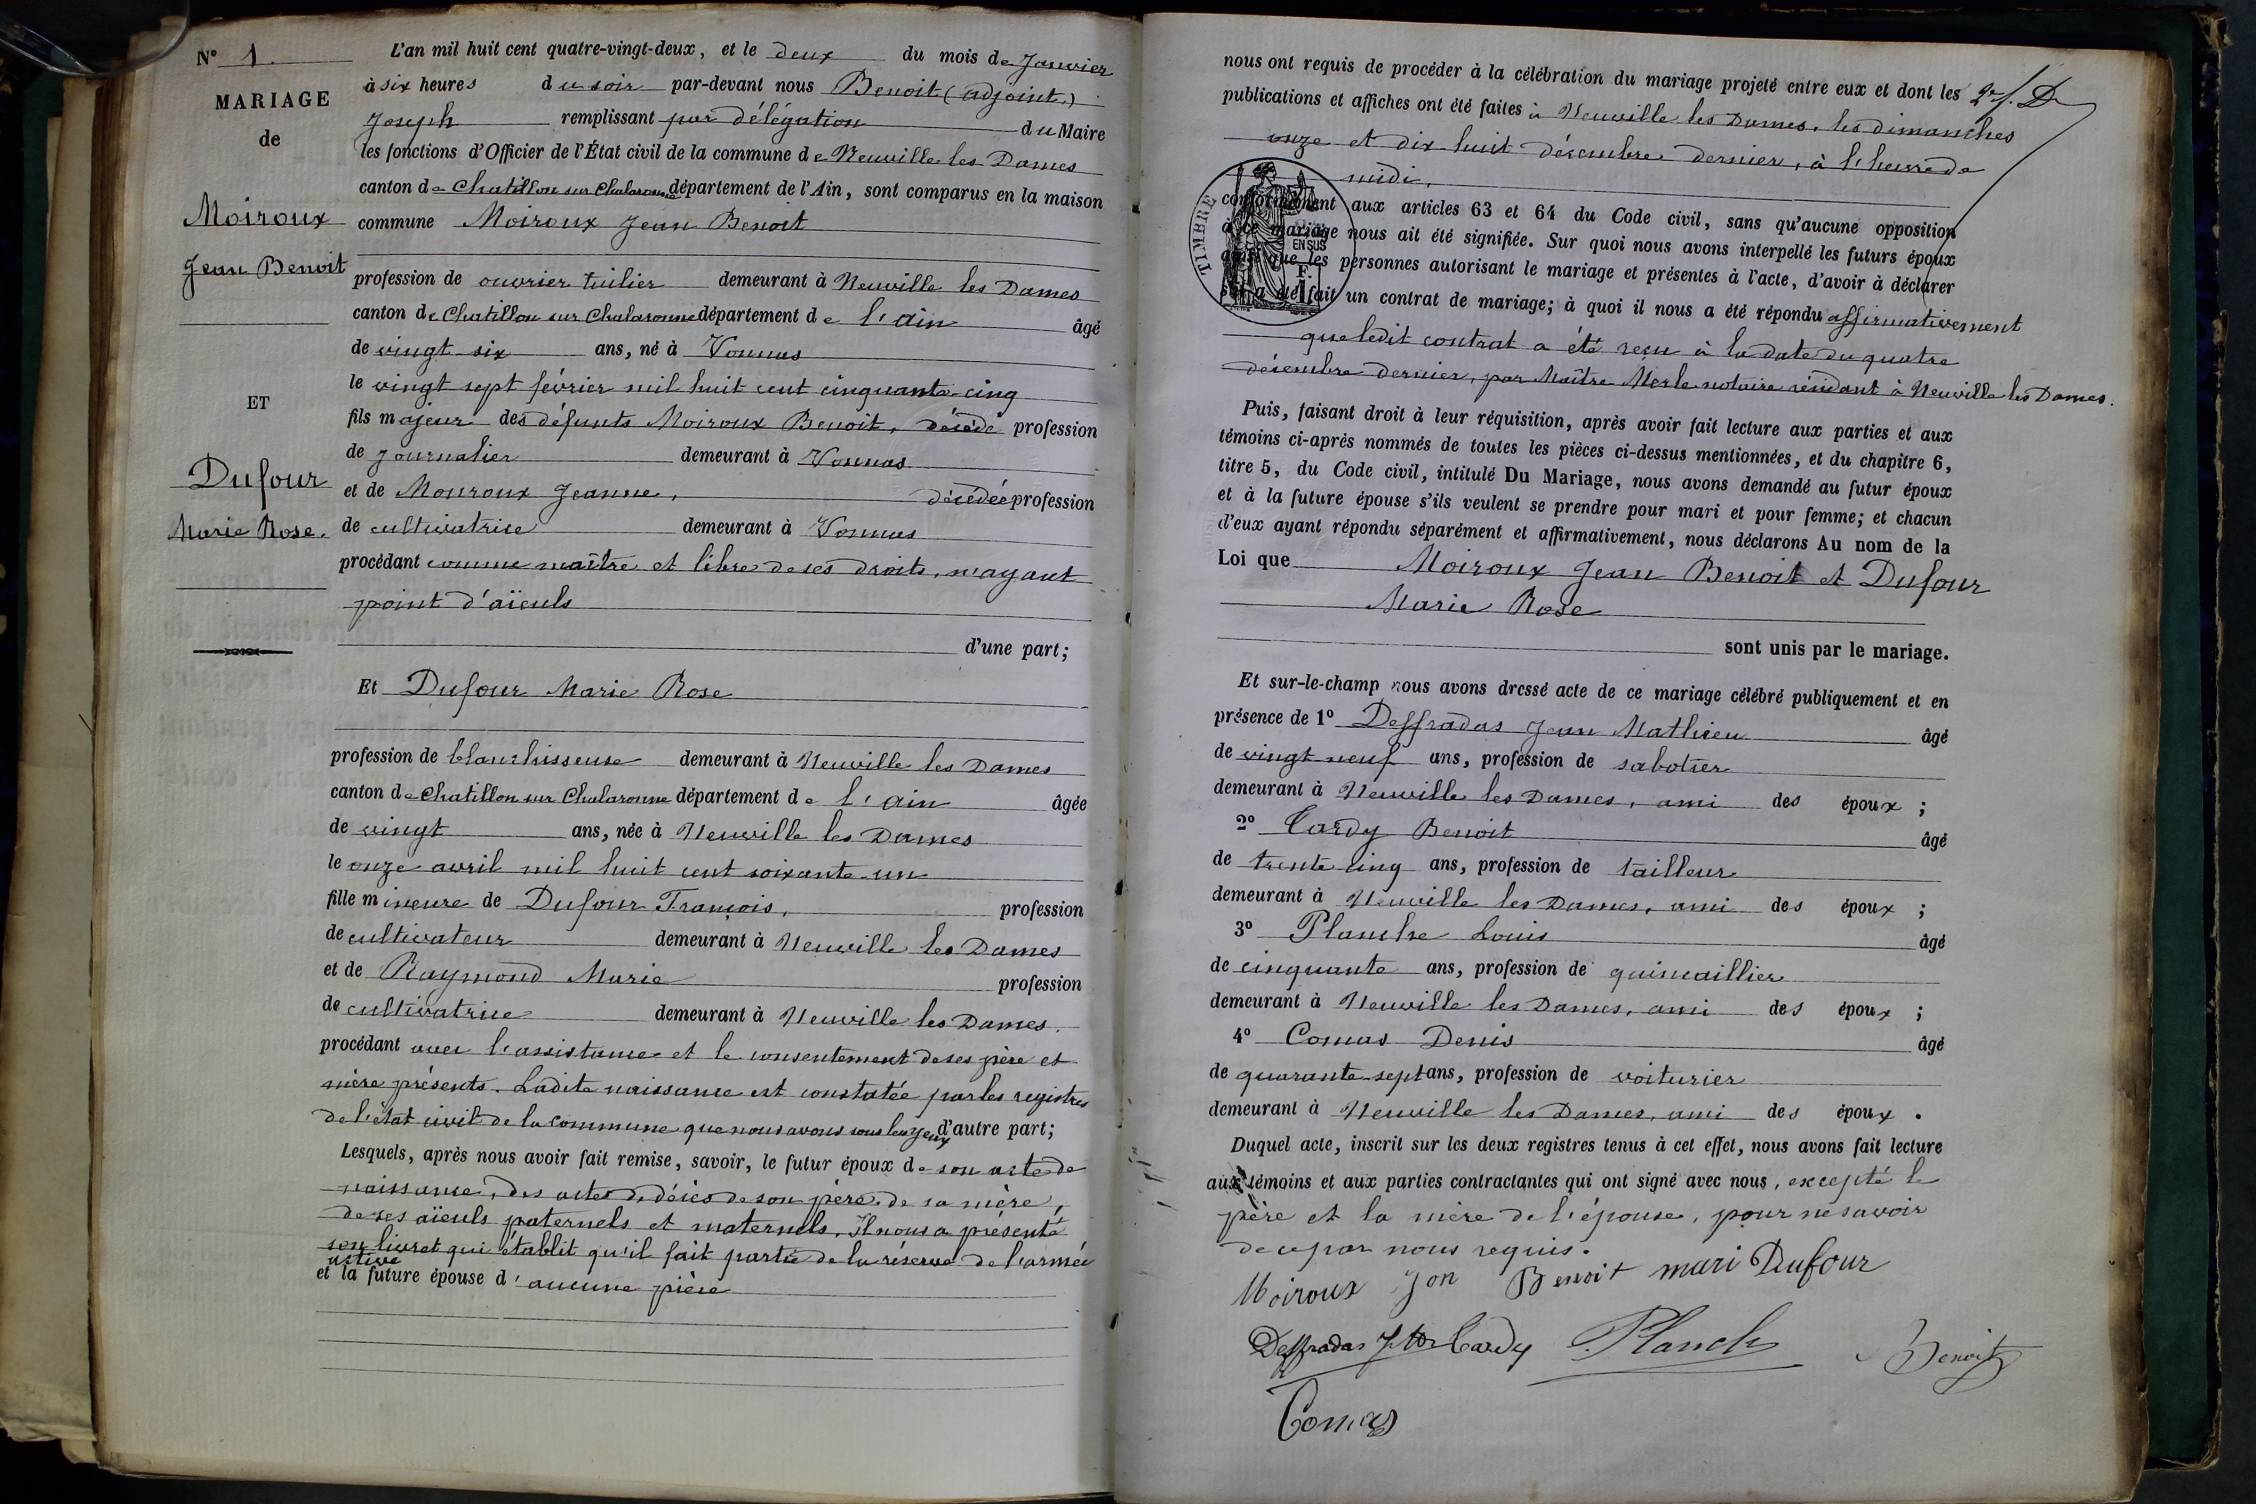 N° 1
MARIAGE
de
Moiroux
Jean Benoit
ET
Dufour
Marie Rose.
L'an mil huit cent quatre-vingt-deux, et le deux du mois de Janvier
à six heures du soir par-devant nous Benoit (adjoint)
Joseph remplissant par délégation du Maire
les fonctions d'Officier de l'État civil de la commune de Neuville les Dames
canton de Chatillon sur Chalaronne département de l'Ain, sont comparus en la maison
commune Moiroux Jean Benoit
profession de ouvrier tuilier demeurant à Neuville les Dames
canton de Chatillon sur Chalaronne département de l'ain âgé
de vingt six ans, né à Vonnas
le vingt sept février mil huit cent cinquante-cinq
fils majeur des défunts Moiroux Benoit, décédé profession
de journalier demeurant à Vonnas
et de Mouroux Jeanne, décédée profession
de cultivatrice demeurant à Vonnas
procédant comme maître et libre de ses droits, n'ayant
point d'aïeuls
d'une part;
Et Dufour Marie Rose
profession de blanchisseuse demeurant à Neuville les Dames
canton de Chatillon sur Chalaronne département de l'ain âgée
de vingt ans, née à Neuville les Dames
le onze avril mil huit cent soixante-un
fille mineure de Dufour François, profession
de cultivateur demeurant à Neuville les Dames
et de Raymond Marie profession
de cultivatrice demeurant à Neuville les Dames.
procédant avec l'assistance et le consentement de ses père et
mère présents. Ladite naissance est constatée par les registres
de l'état civil de la commune que nous avons sous les yeux d'autre part;
Lesquels, après nous avoir fait remise, savoir, le futur époux de son acte de
naissance, des actes de décès de son père, de sa mère,
de ses aïeuls paternels et maternels. Il nous a présenté
son livret qui établit qu'il fait partie de la réserve de l'armée
active
et la future épouse d'aucune pièce
nous ont requis de procéder à la célébration du mariage projeté entre eux et dont les
publications et affiches ont été faites à Neuville les Dames, les dimanches
onze et dix huit décembre dernier, à l'heure de
midi,
TIMBRE
EN SUS
conformément aux articles 63 et 64 du Code civil, sans qu'aucune opposition
à ce mariage nous ait été signifiée. Sur quoi nous avons interpellé les futurs époux
ainsi que les personnes autorisant le mariage et présentes à l'acte, d'avoir à déclarer
s'il a été fait un contrat de mariage; à quoi il nous a été répondu affirmativement
que ledit contrat a été reçu à la date du quatre
décembre dernier, par Maître Merle notaire résidant à Neuville les Dames.
Puis, faisant droit à leur réquisition, après avoir fait lecture aux parties et aux
témoins ci-après nommés de toutes les pièces ci-dessus mentionnées, et du chapitre 6,
titre 5, du Code civil, intitulé Du Mariage, nous avons demandé au futur époux
et à la future épouse s'ils veulent se prendre pour mari et pour femme; et chacun
d'eux ayant répondu séparément et affirmativement, nous déclarons Au nom de la
Loi que Moiroux Jean Benoit et Dufour
Marie Rose
sont unis par le mariage.
Et sur-le-champ nous avons dressé acte de ce mariage célébré publiquement et en
présence de 1° Deffradas Jean Mathieu âgé
de vingt-neuf ans, profession de sabotier
demeurant à Neuville les Dames, ami des époux ;
2° Cardy Benoit âgé
de trente cinq ans, profession de tailleur
demeurant à Neuville les Dames, ami des époux ;
3° Planche Louis âgé
de cinquante ans, profession de quincaillier
demeurant à Neuville les Dames, ami des époux ;
4° Comas Denis âgé
de quarante-sept ans, profession de voiturier
demeurant à Neuville les Dames, ami des époux.
Duquel acte, inscrit sur les deux registres tenus à cet effet, nous avons fait lecture
aux témoins et aux parties contractantes qui ont signé avec nous, excepté le
père et la mère de l'épouse, pour ne savoir
de ce par nous requis.
Moiroux Jon Benoit mari Dufour
Deffradas Cardy Planch Benoit
Comas